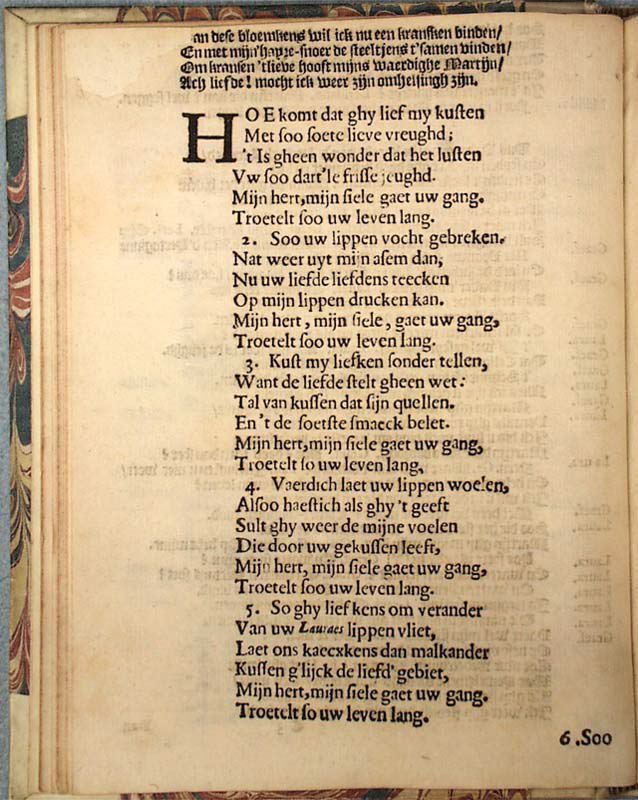 an dese bloemkens wil ick nu een kransken binden/
En met mijn hayre-snoer de steeltjens t'samen binden/
Om kransen 'tlieve hooft mijns waerdighe Martijn/
Ach liefde! mocht ick weer zijn omhelsingh zijn.
HOE komt dat ghy lief my kusten
Met soo soete lieve vreughd;
't Is gheen wonder dat het lusten
Vw soo dart'le frisse jeughd.
Mijn hert, mijn siele gaet uw gang.
Troetelt soo uw leven lang.
2. Soo uw lippen vocht gebreken.
Nat weer uyt mijn asem dan,
Nu uw liefde liefdens teecken
Op mijn lippen drucken kan.
Mijn hert, mijn siele, gaet uw gang,
Troetelt soo uw leven lang.
3. Kust my liefken sonder tellen,
Want de liefde stelt gheen wet:
Tal van kussen dat sijn quellen.
En 't de soetste smaeck belet.
Mijn hert, mijn siele gaet uw gang,
Troetelt so uw leven lang,
4. Vaerdich laet uw lippen woelen,
Alsoo haestich als ghy 't geeft
Sult ghy weer de mijne voelen
Die door uw gekussen leeft,
Mijn hert, mijn siele gaet uw gang,
Troetelt soo uw leven lang.
5. So ghy liefkens om verander
Van uw Lauraes lippen vliet,
Laet ons kaecxkens dan malkander
Kussen g'lijck de liefd' gebiet,
Mijn hert, mijn siele gaet uw gang.
Troetelt so uw leven lang.
6. Soo